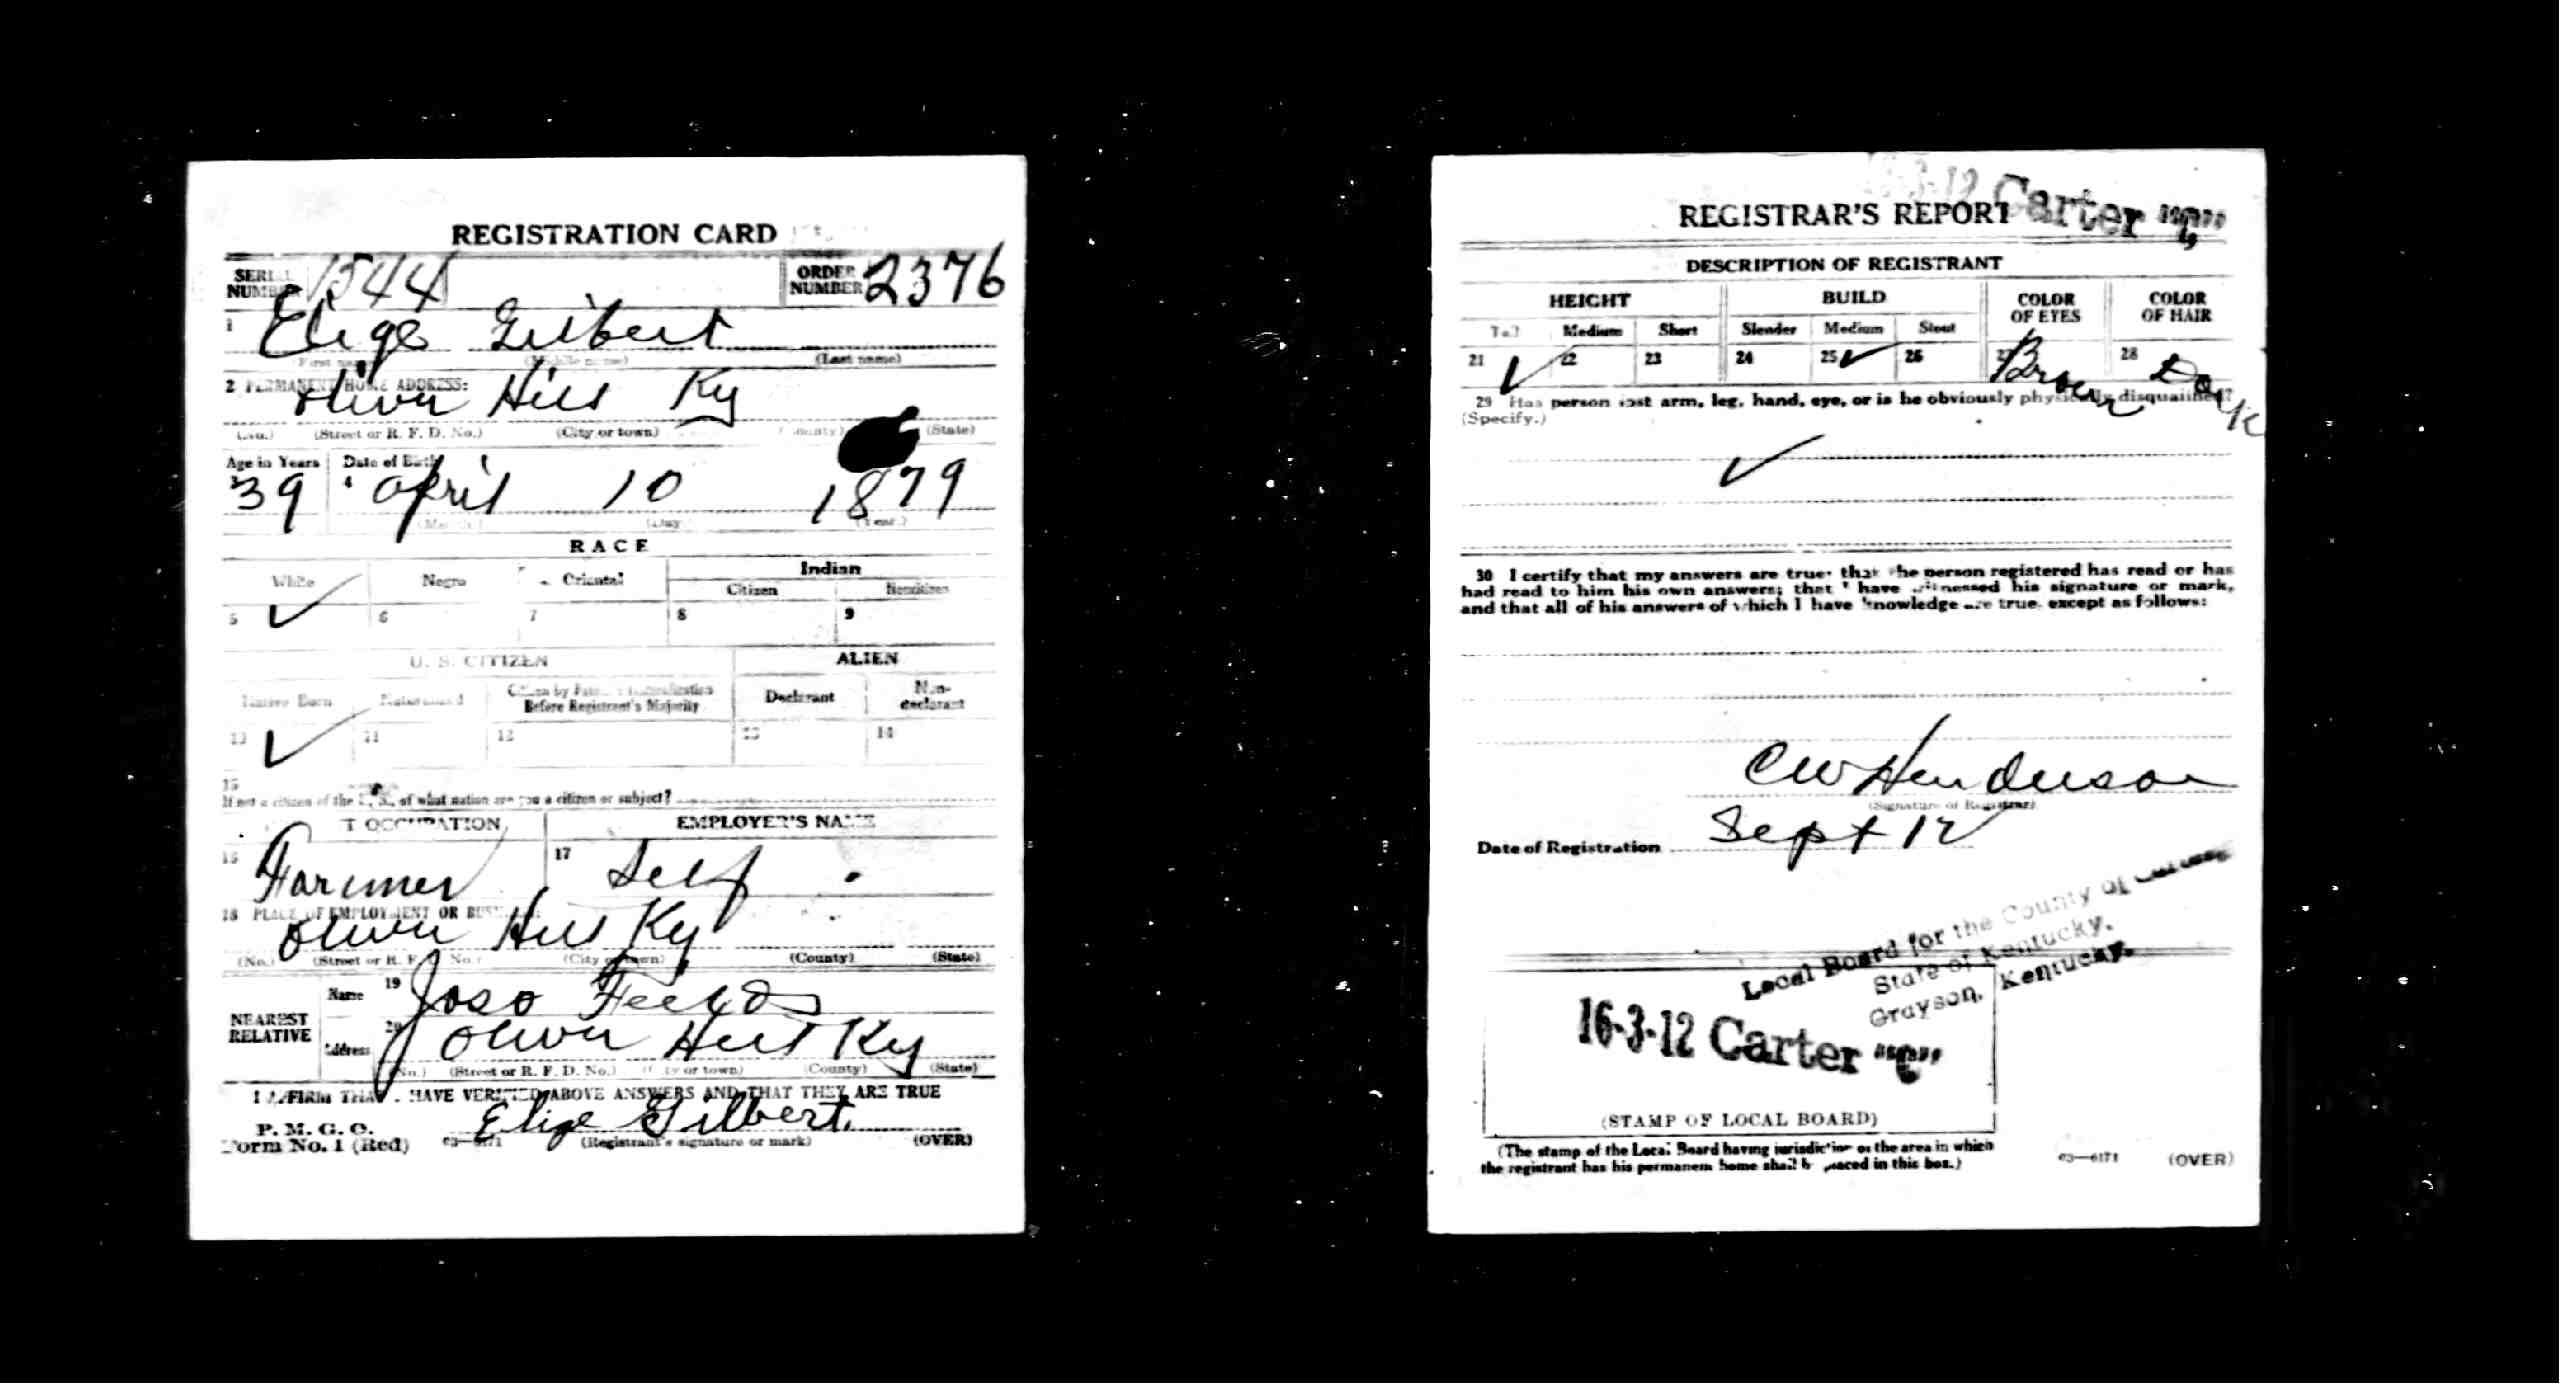 REGISTRATION CARD
SERIAL NUMBER 1544 ORDER NUMBER 2376
1 Elige Gilbert
(First name) (Middle name) (Last name)
2 PERMANENT HOME ADDRESS:
Olive Hill Ky
(No.) (Street or R. F. D. No.) (City or town) (County) (State)
Age in Years Date of Birth
3 39 4 April 10 1879
(Month.) (Day.) (Year.)
RACE
White Negro Oriental Indian
Citizen Noncitizen
5 ✓ 6 7 8 9
U. S. CITIZEN ALIEN
Native Born Naturalized Citizen by Father's Naturalization Before Registrant's Majority Declarant Non-declarant
10 ✓ 11 12 13 14
15
If not a citizen of the U. S., of what nation are you a citizen or subject?
T OCCUPATION EMPLOYER'S NAME
16 Farmer 17 Self
18 PLACE OF EMPLOYMENT OR BUSINESS:
Olive Hill Ky
(No.) (Street or R. F. D. No.) (City or town) (County) (State)
NEAREST RELATIVE
Name 19
Address 20 Olive Hill Ky
(No.) (Street or R. F. D. No.) (City or town) (County) (State)
I AFFIRM THAT I HAVE VERIFIED ABOVE ANSWERS AND THAT THEY ARE TRUE
P. M. G. O.
Form No. 1 (Red) 03—6171 Elige Gilbert
(Registrant's signature or mark) (OVER)
16-3-12 Carter "C"
REGISTRAR'S REPORT
DESCRIPTION OF REGISTRANT
HEIGHT BUILD COLOR OF EYES COLOR OF HAIR
Tall Medium Short Slender Medium Stout
21 ✓ 22 23 24 25 ✓ 26 27 Brown 28 Dark
29 Has person lost arm, leg, hand, eye, or is he obviously physically disqualified?
(Specify.)
✓
30 I certify that my answers are true; that the person registered has read or has
had read to him his own answers; that I have witnessed his signature or mark,
and that all of his answers of which I have knowledge are true, except as follows:
C W Henderson
(Signature of Registrar)
Date of Registration Sept 12
Local Board for the County of Carter
State of Kentucky.
Grayson, Kentucky.
16-3-12 Carter "C"
(STAMP OF LOCAL BOARD)
(The stamp of the Local Board having jurisdiction of the area in which
the registrant has his permanent home shall be placed in this box.)
03—6171 (OVER)